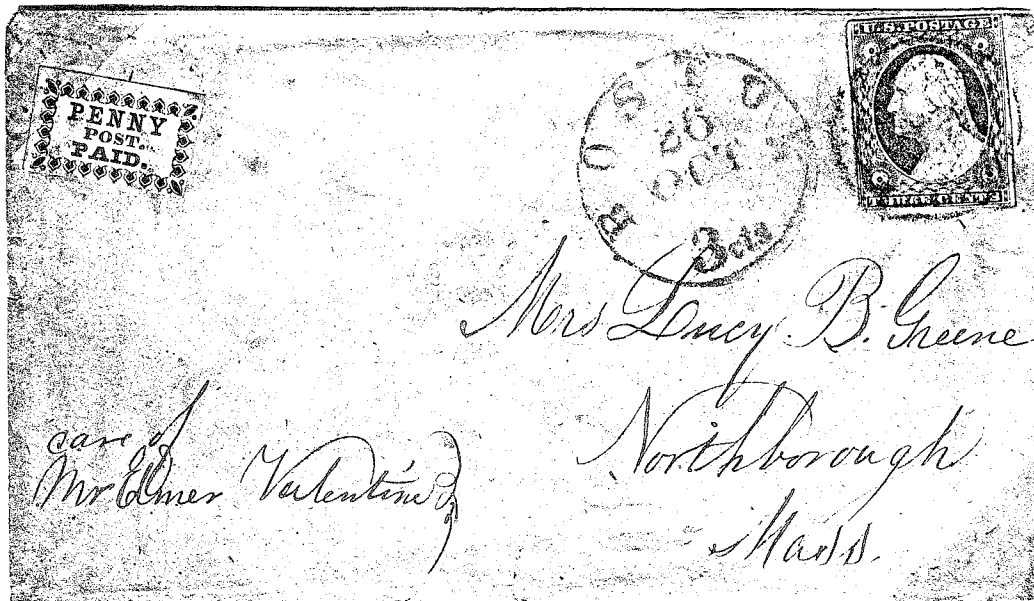 PENNY
POST.
PAID.
BOSTON
26
OCT
3 cts
U.S. POSTAGE
THREE CENTS
Mrs Lucy B. Greene
Northborough
Mass.
care of
Mr Elmer Valentine